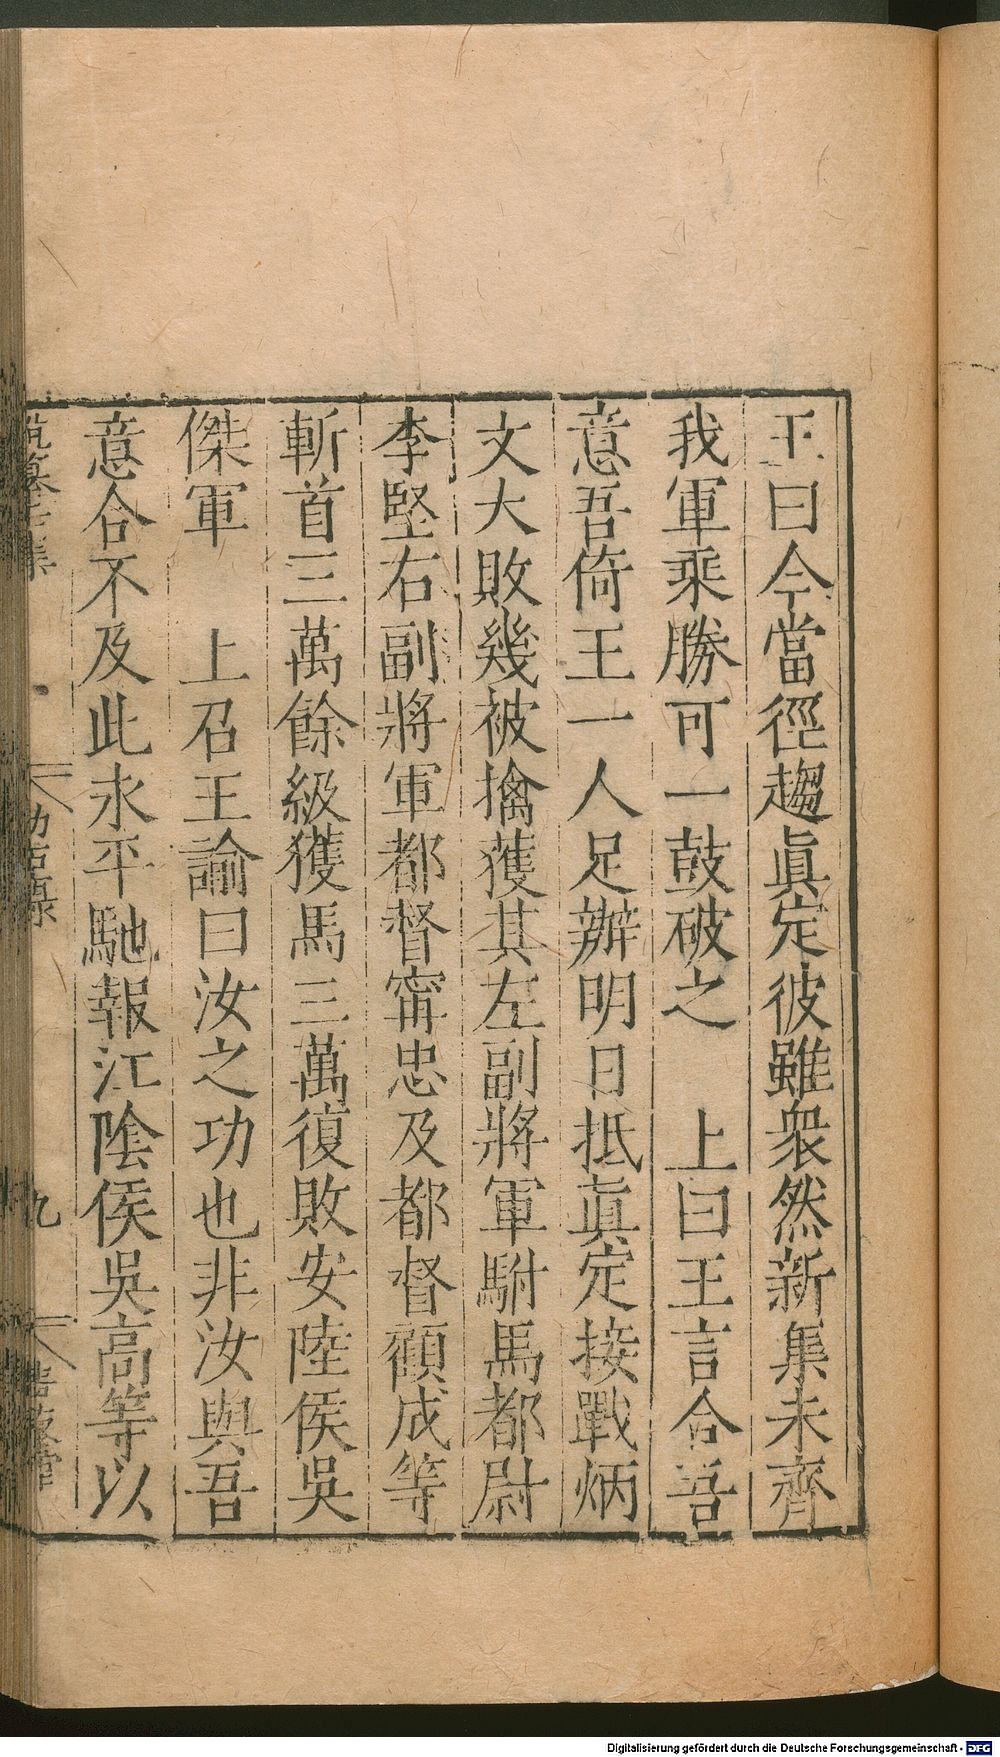 王曰今當徑趨眞定彼雖衆然新集未齊
我軍乘勝可一鼓破之　上曰王言合吾
意吾倚王一人足辦明日抵眞定接戰炳
文大敗幾被擒獲其左副將軍駙馬都尉
李堅右副將軍都督甯忠及都督顧成等
斬首三萬餘級獲馬三萬復敗安陸侯吳
傑軍　上召王諭曰汝之功也非汝與吾
意合不及此永平馳報江陰侯吳高等以
功臣錄
九
Digitalisierung gefördert durch die Deutsche Forschungsgemeinschaft - DFG